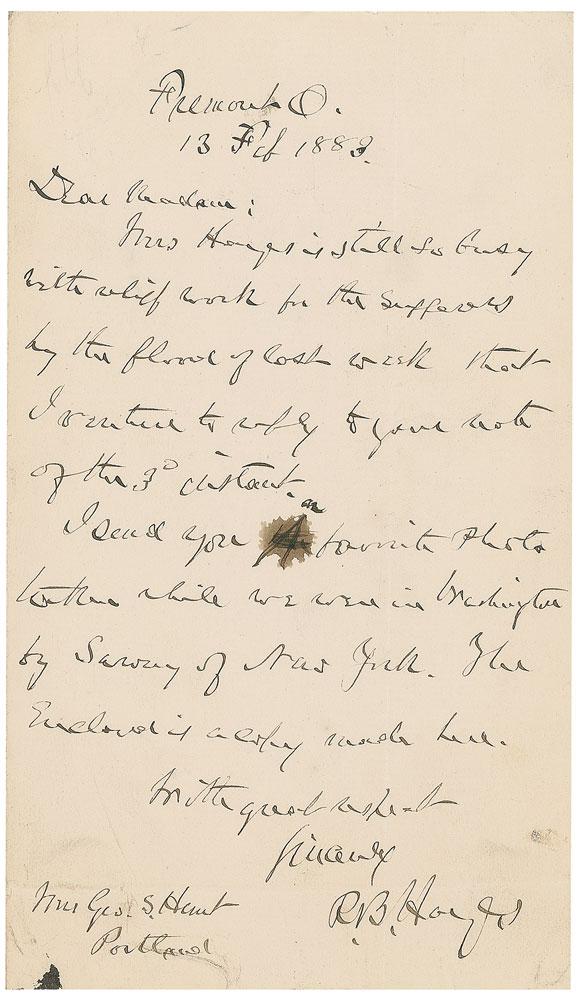 Fremont O.
13 Feb 1883.
Dear Madam:
Mrs Hayes is still so busy
with relief work for the sufferers
by the flood of last week that
I venture to reply to your note
of the 3d instant.
I send you our favorite Photo
taken while we were in Washington
by Sarony of New York. The
Enclosed is a copy made here.
With great respect
Sincerely
R. B. Hayes
Mrs Geo. S. Hunt
Portland